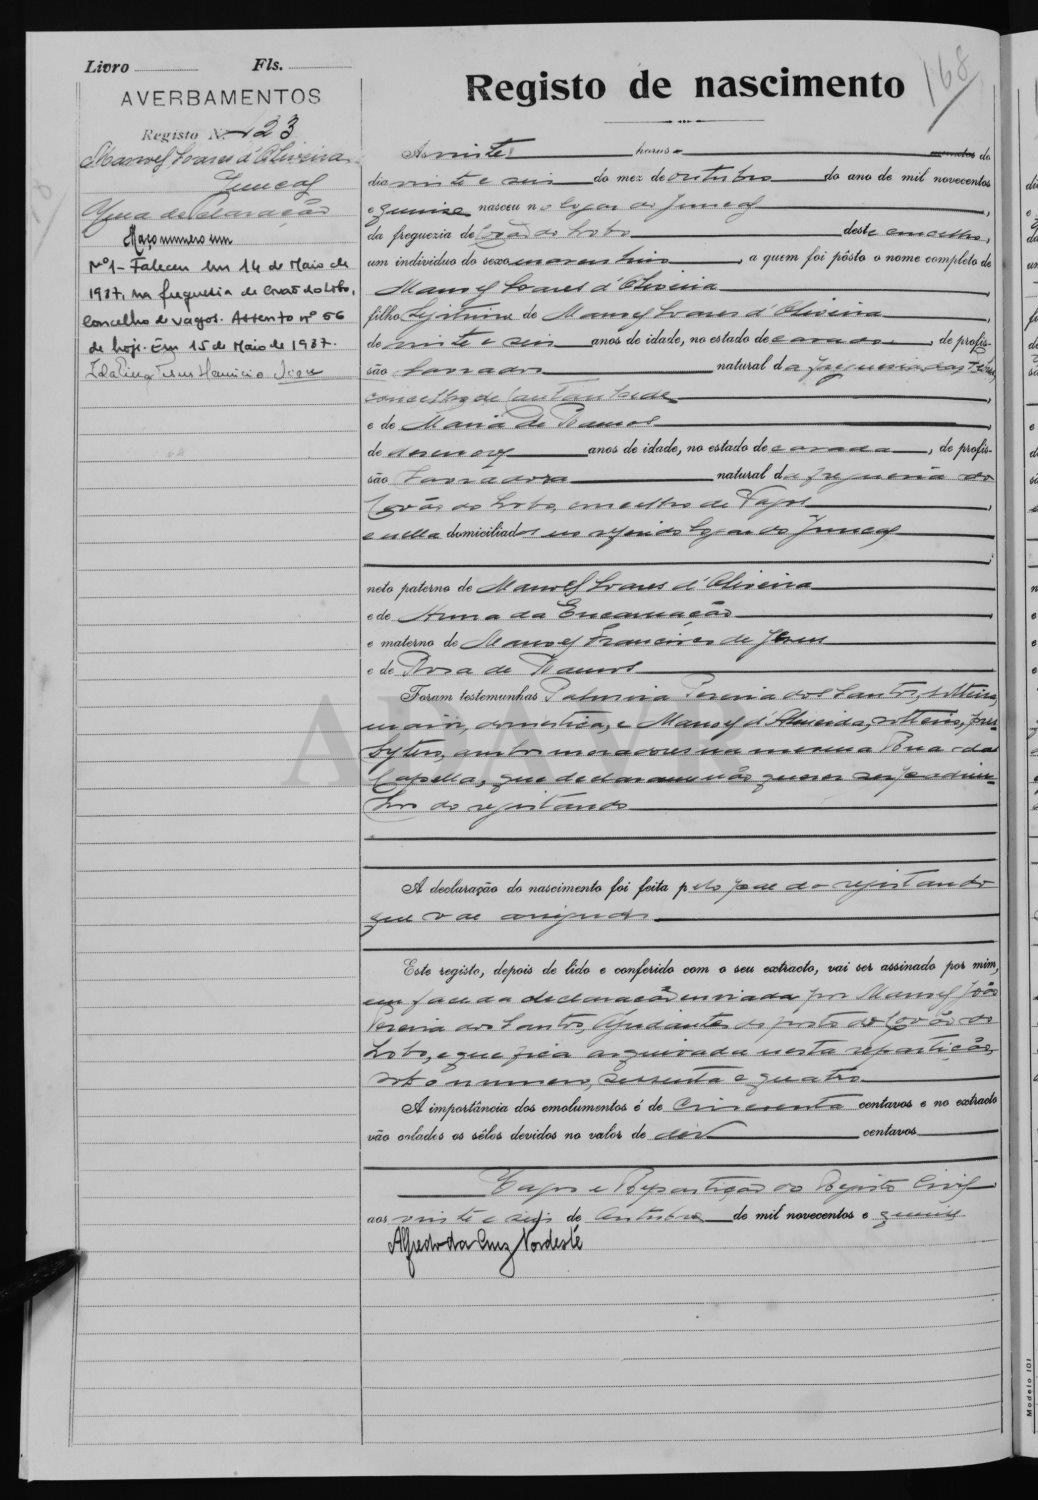 Livro Fls.
AVERBAMENTOS
Registo N. 123
Manoel Soares d'Oliveira
Juncal
Uma declaração
Maço numero um
Nº1 - Faleceu em 14 de Maio de
1987, na freguesia de Covão do Lobo,
concelho de Vagos. Assento nº 56
de hoje. Em 15 de Maio de 1987.
168
Registo de nascimento
Ás vinte horas e minutos do
dia vinte e seis do mez de outubro do ano de mil novecentos
e quinze nasceu no logar do Juncal
da freguezia de Covão do Lobo deste concelho,
um individuo do sexo masculino, a quem foi pôsto o nome completo de
Manoel Soares d'Oliveira
filho legitimo de Manoel Soares d'Oliveira
de vinte e seis anos de idade, no estado de casado, de profis-
são lavrador natural da freguesia das Febres,
concelho de Cantanhede,
e de Maria de Ramos
de desenove anos de idade, no estado de casada, de profis-
são lavradora natural da freguesia do
Covão do Lobo, concelho de Vagos,
e nella domiciliados no referido logar do Juncal
neto paterno de Manoel Soares d'Oliveira
e de Anna da Encarnação
e materno de Manoel Francisco de Jesus
e de Rosa de Ramos
Foram testemunhas Palmira Pereira dos Santos, solteira,
maior, domestica, e Manoel d'Almeida, solteiro, pres-
bytero, ambos moradores na mesma Rua da
Capella, que declararam não querer ser padri-
nhos do registando
A declaração do nascimento foi feita pelo pae do registando
que vae assignar
Este registo, depois de lido e conferido com o seu extracto, vai ser assinado por mim,
em face da declaração enviada por Manoel João
Pereira dos Santos, Ajudante do posto do Covão do
Lobo, e que fica arquivada nesta repartição,
sob o numero, sessenta e quatro
A importância dos emolumentos é de cincoenta centavos e no extracto
vão colados os sêlos devidos no valor de dez centavos
Vagos e Repartição do Registo Civil
aos vinte e seis de outubro de mil novecentos e quinze
Alfredo da Cruz Nordeste
ADAVR
Modelo 101